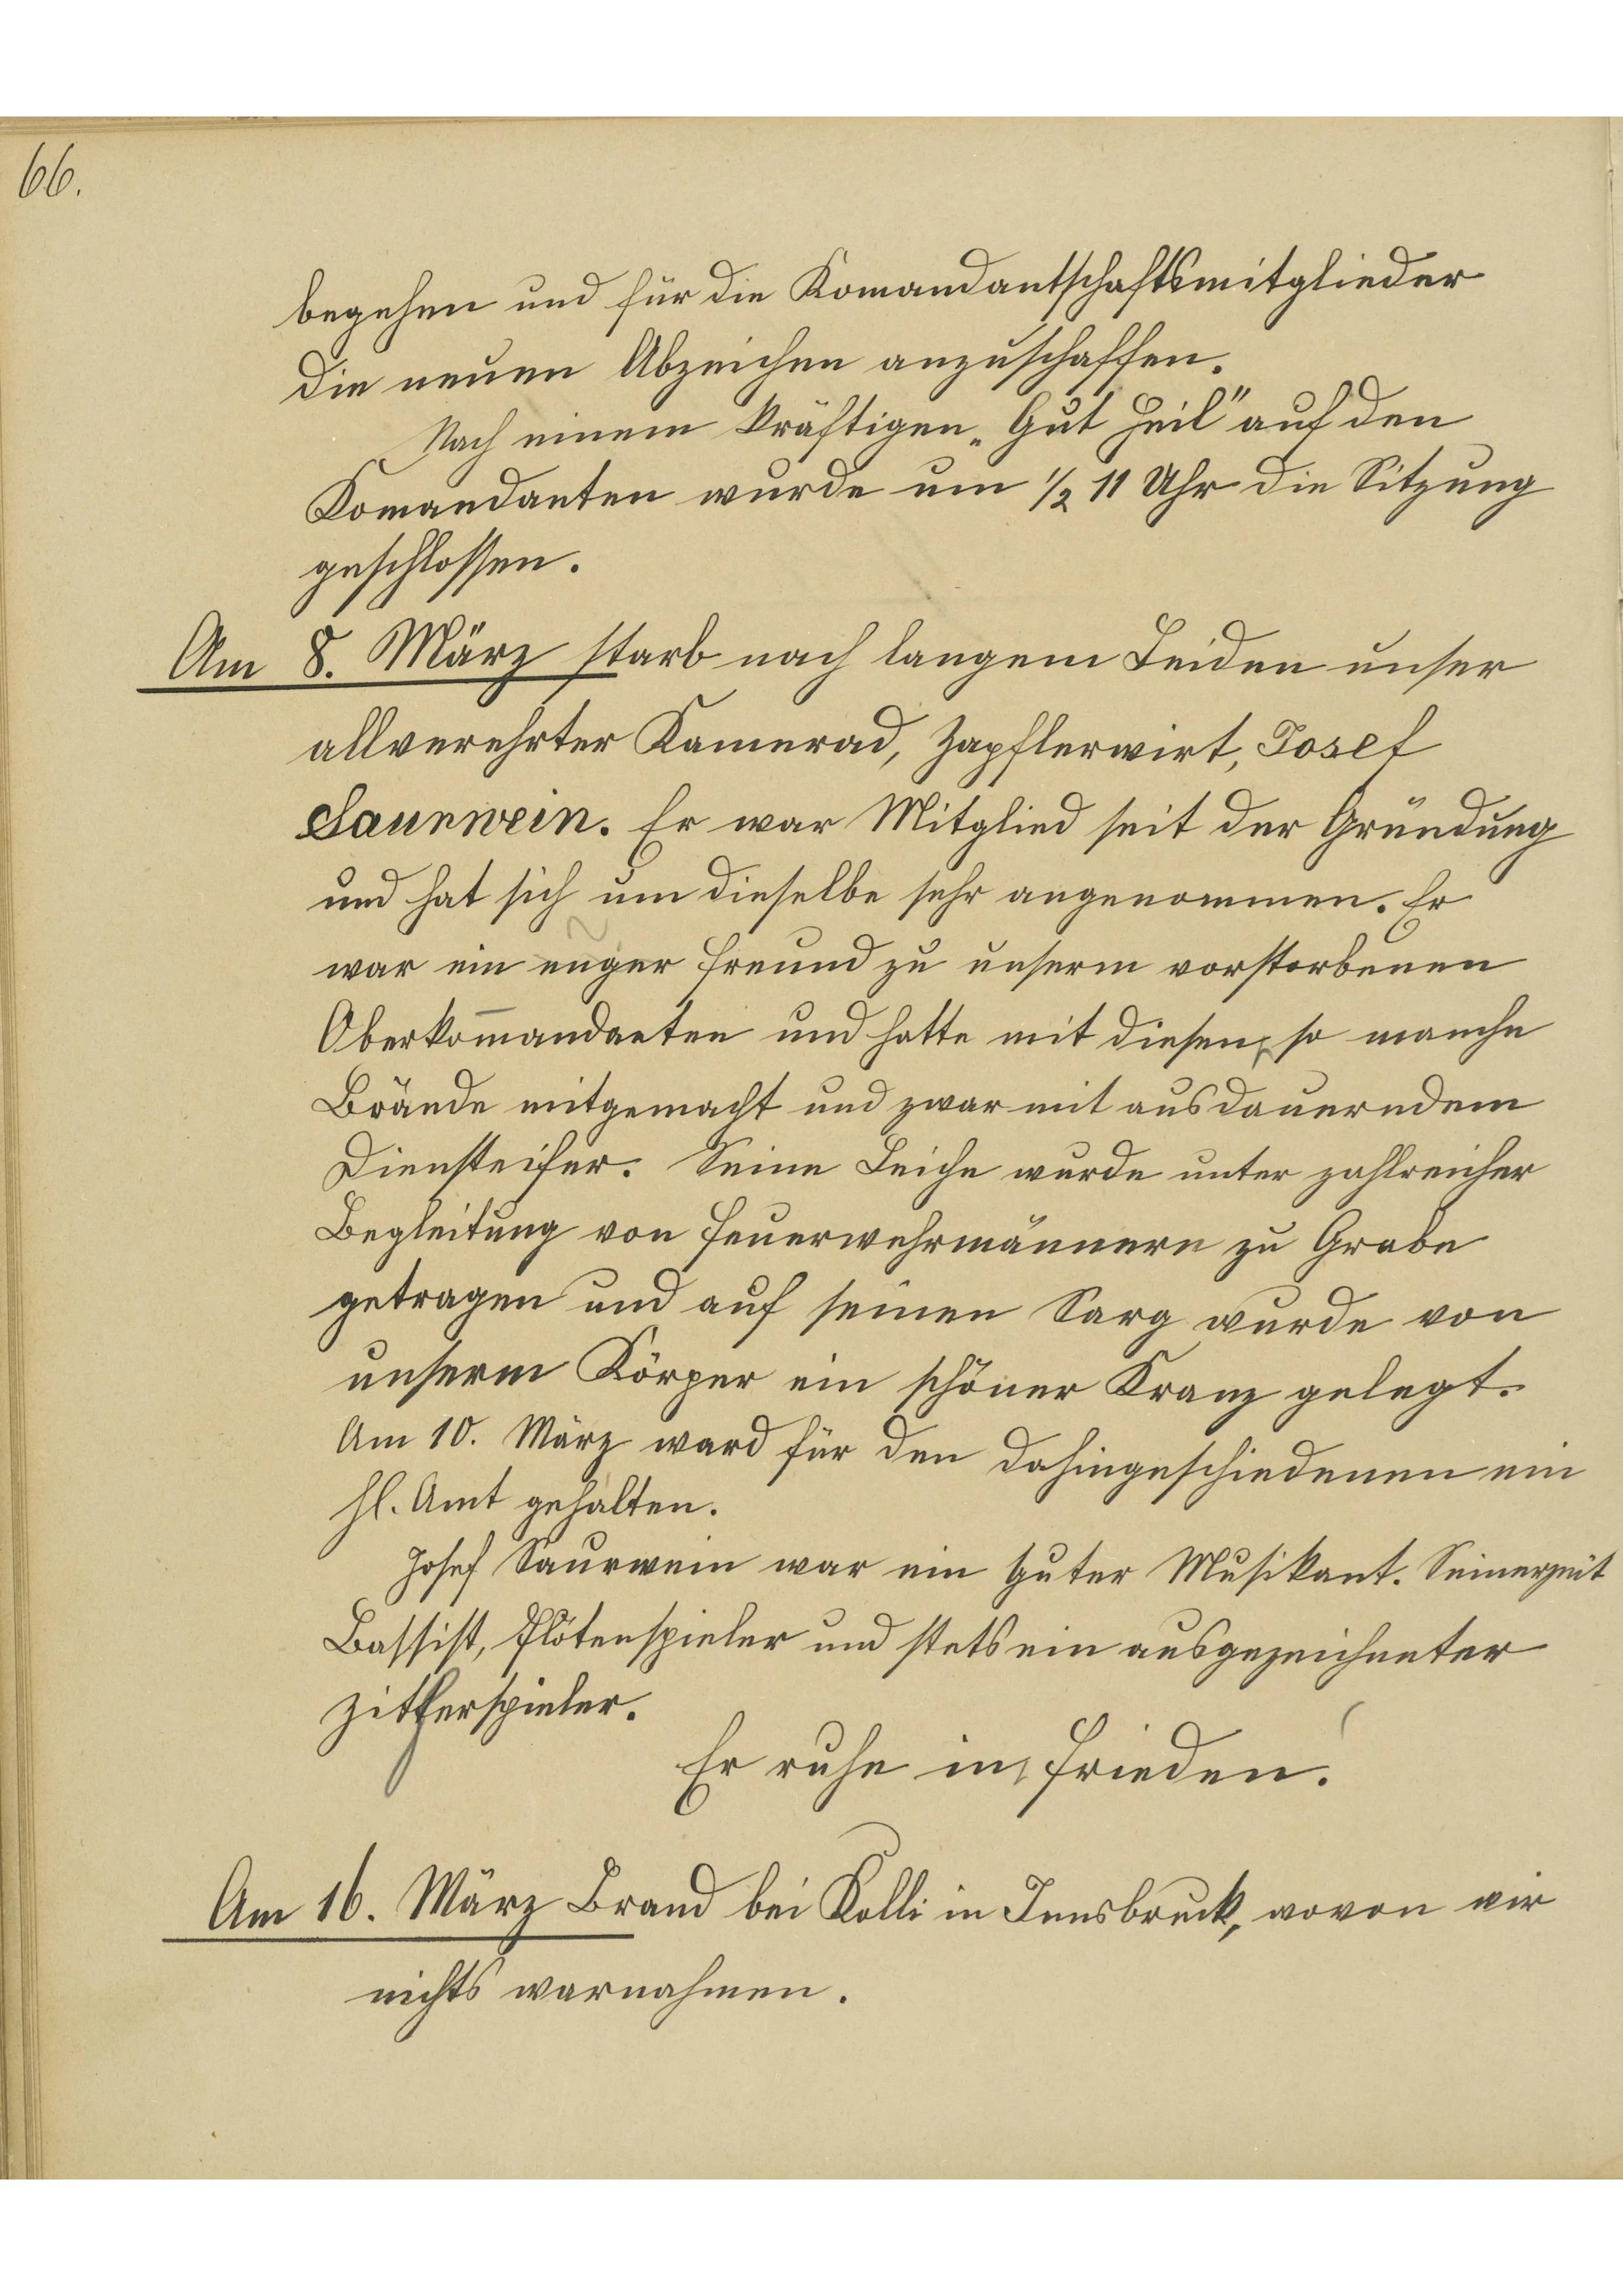 66.
begehen und für die Komandantschaftsmitglieder
die neuen Abzeichen anzuschaffen.
Nach einem kräftigen „Gut Heil" auf den
Komandanten wurde um ½ 11 Uhr die Sitzung
geschlossen.
Am 8. März starb nach langem Leiden unser
allverehrter Kamerad, Zapflerwirt, Josef
Saurwein. Er war Mitglied seit der Gründung
und hat sich um dieselbe sehr angenommen. Er
war ein enger Freund zu unserm vorstorbenen
Oberkom̄andanten und hatte mit diesen so manche
Brände mitgemacht und zwar mit ausdauerndem
Diensteifer. Seine Leiche wurde unter zahlreicher
Begleitung von Feuerwehrmännern zu Grabe
getragen und auf seinen Sarg wurde von
unserm Körper ein schöner Kranz gelegt.
Am 10. März ward für den Dahingeschiedenen ein
hl. Amt gehalten.
Josef Saurwein war ein guter Musikant. Seinerzeit
Bassist, Flötenspieler und stets ein ausgezeichneter
Zitherspieler.
Er ruhe in Frieden!
Am 16. März Brand bei Kolli in Innsbruck, wovon wir
nichts warnahmen.